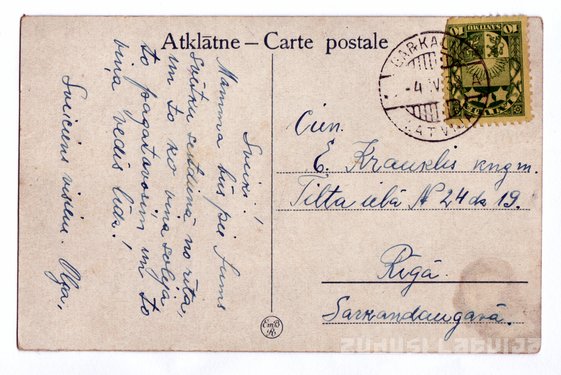 Atklātne – Carte postale
Sveiki!
Mamma būs pie Jums
Svētku sestdienā no rīta,
un to ko viņa solīja
to pagatavosim un to
viņa vedīs līdz!
Sveiciens visiem. Olga.
LATVIJA
Cien.
E. Krauklis kngm.
Tilta ielā N 24 dz 19.
Rīgā.
Sarkandaugavā.
zudusi Latvija